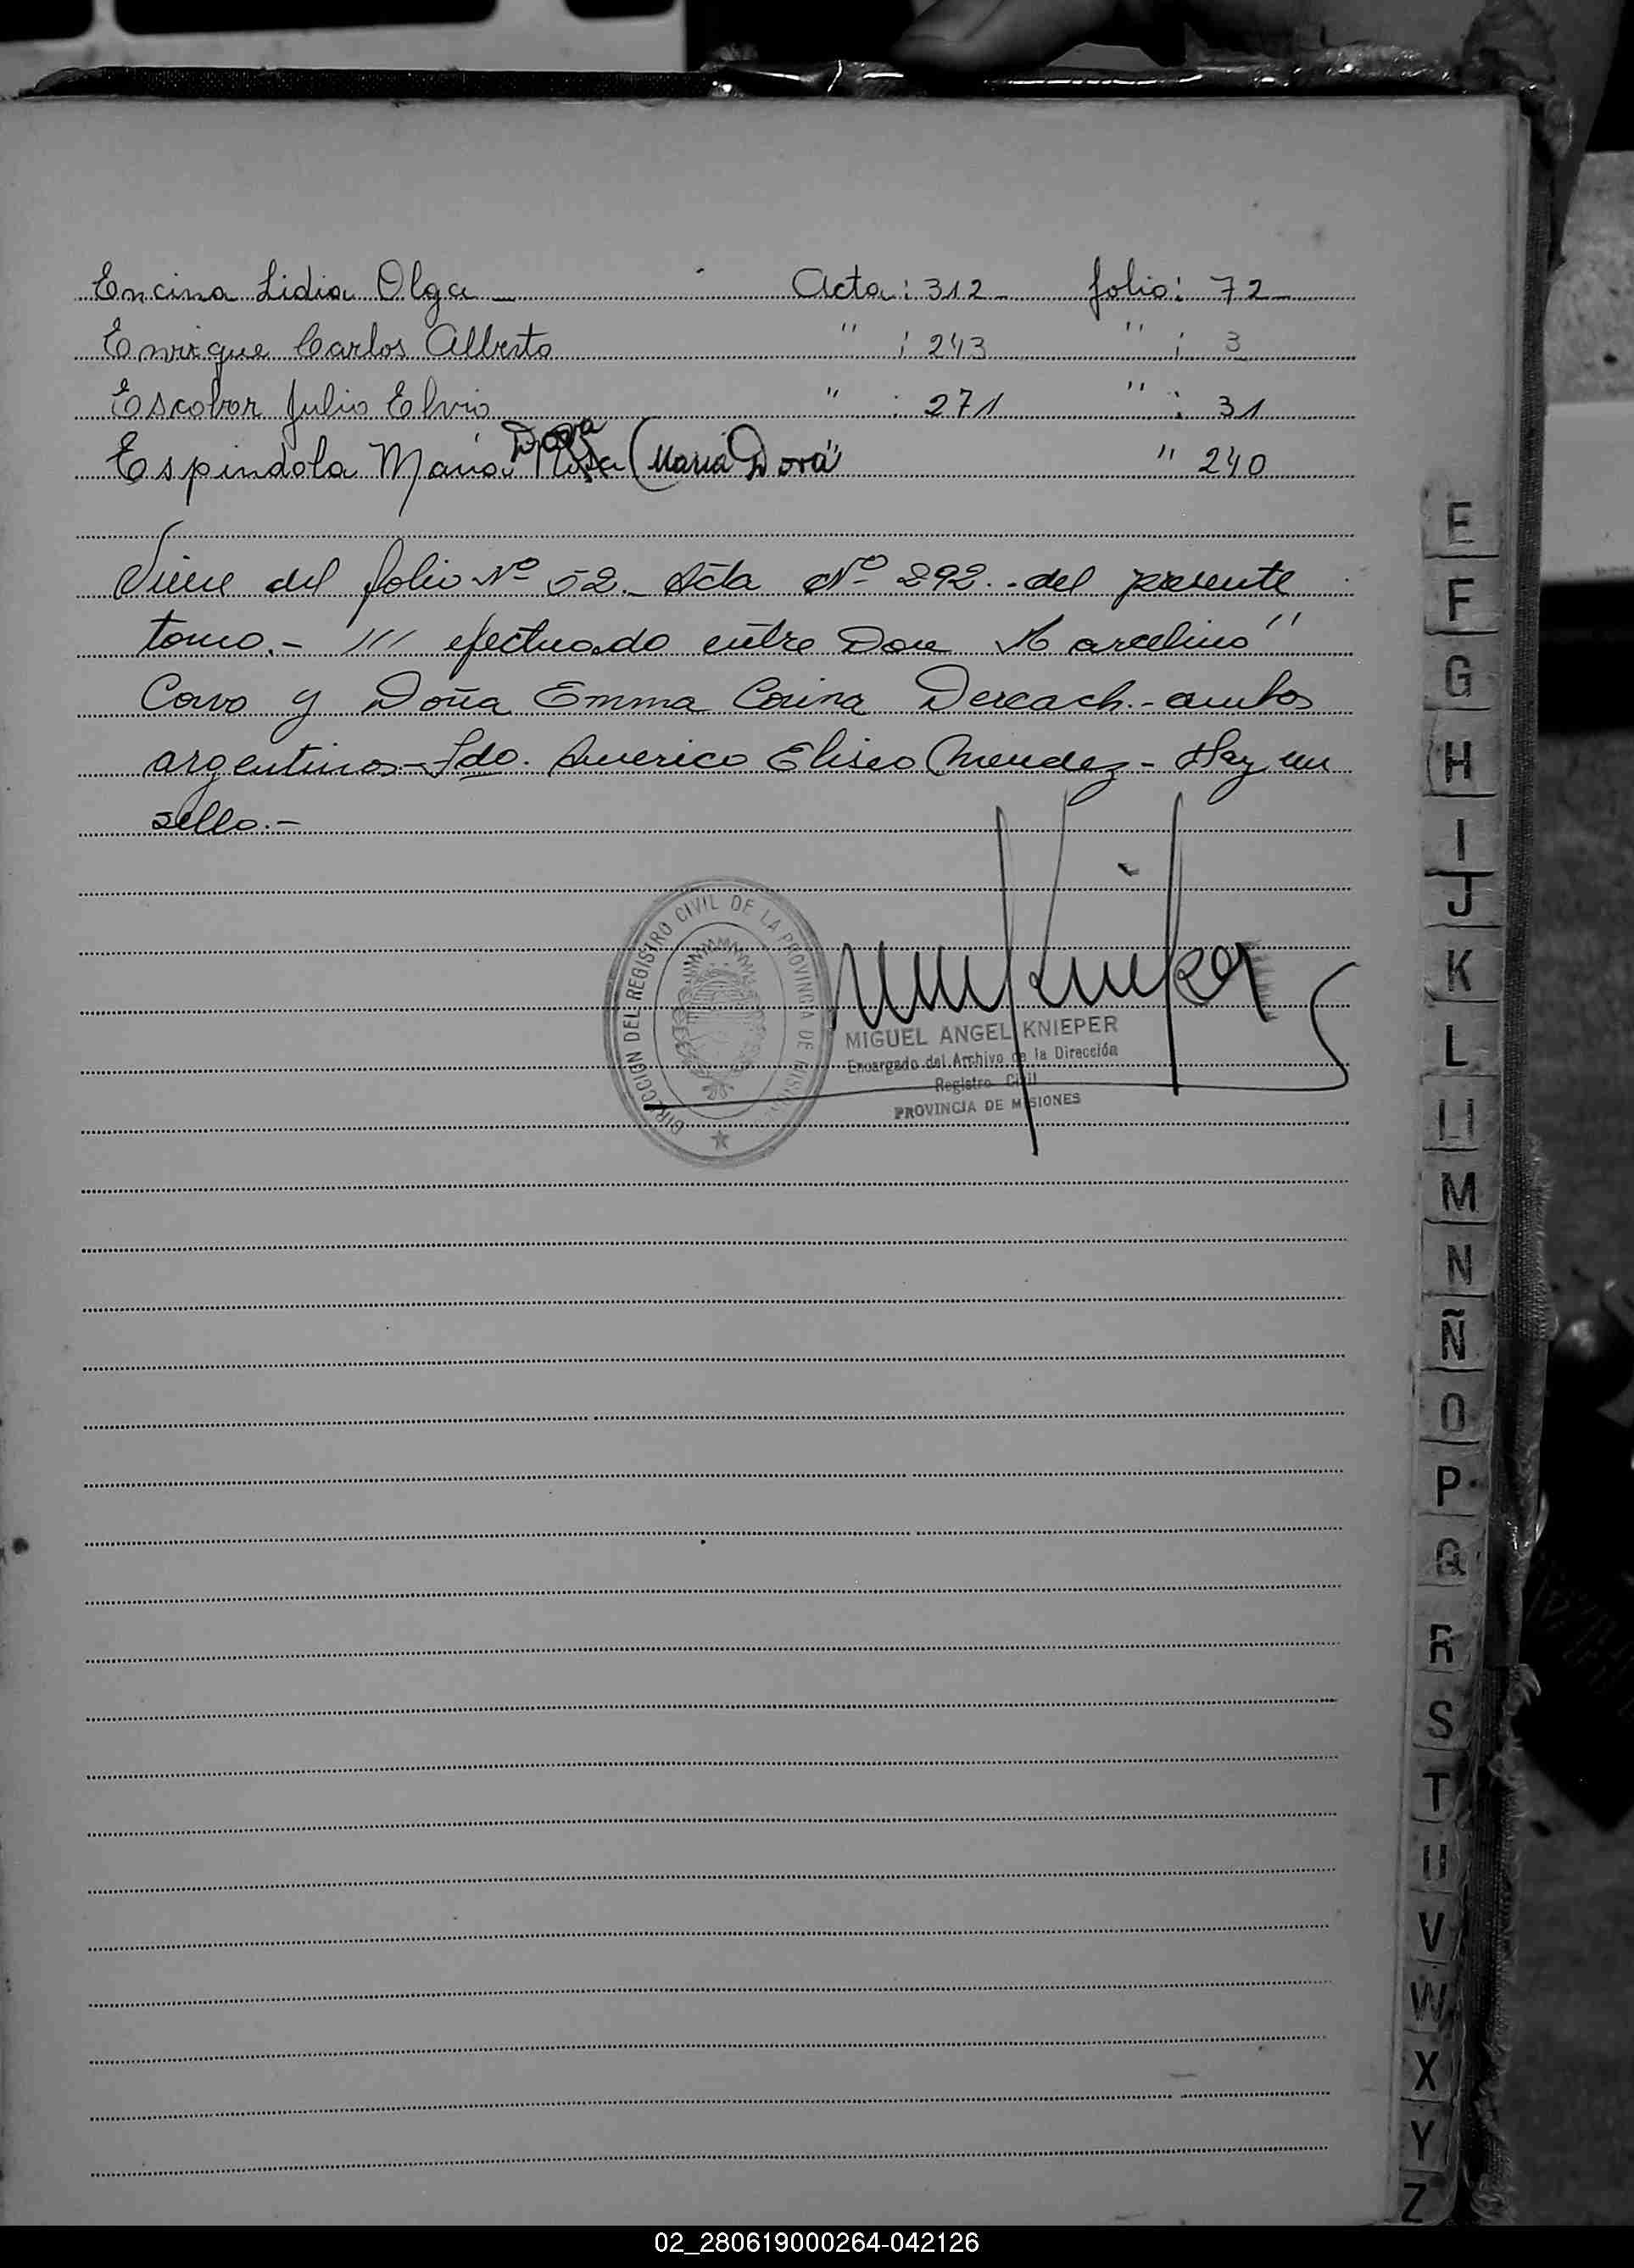 Encina Lidia Olga Acta: 312 folio: 72
Enrique Carlos Alberto " : 243 " : 3
Escobar Julio Elvio " : 271 " : 31
Dora
Espindola Maria Rosa (Maria Dora) " 240
Viene del folio Nº 52.- Acta Nº 292.- del presente
tomo.- /// efectuado entre Don Marcelino"
Cavo y Doña Emma Corina Dereach.- ambos
argentinos- Fdo. Americo Eliseo Mendez- Hay un
sello.-
DIRECCION DEL REGISTRO CIVIL DE LA PROVINCIA DE MISIONES
MIGUEL ANGEL KNIEPER
Encargado del Archivo de la Dirección
Registro Civil
PROVINCIA DE MISIONES
E
F
G
H
I
J
K
L
Ll
M
N
Ñ
O
P
Q
R
S
T
U
V
W
X
Y
Z
02_280619000264-042126